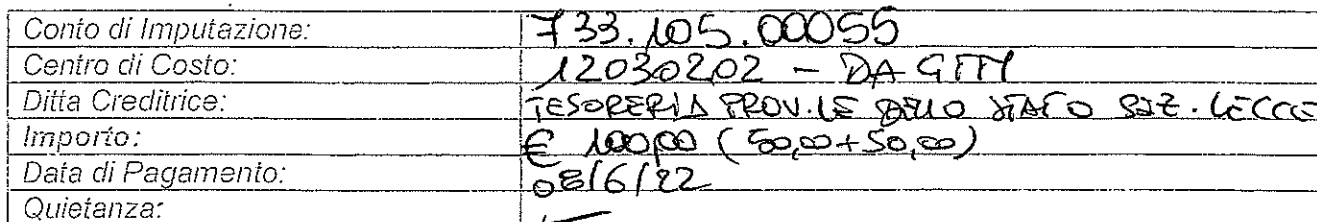 Conto di Imputazione: 733.105.00055
Centro di Costo: 12030202 - DA GITTI
Ditta Creditrice: TESORERIA PROV.LE DELLO STATO SEZ. LECCE
Importo: € 100,00 (50,00+50,00)
Data di Pagamento: 08/6/22
Quietanza: